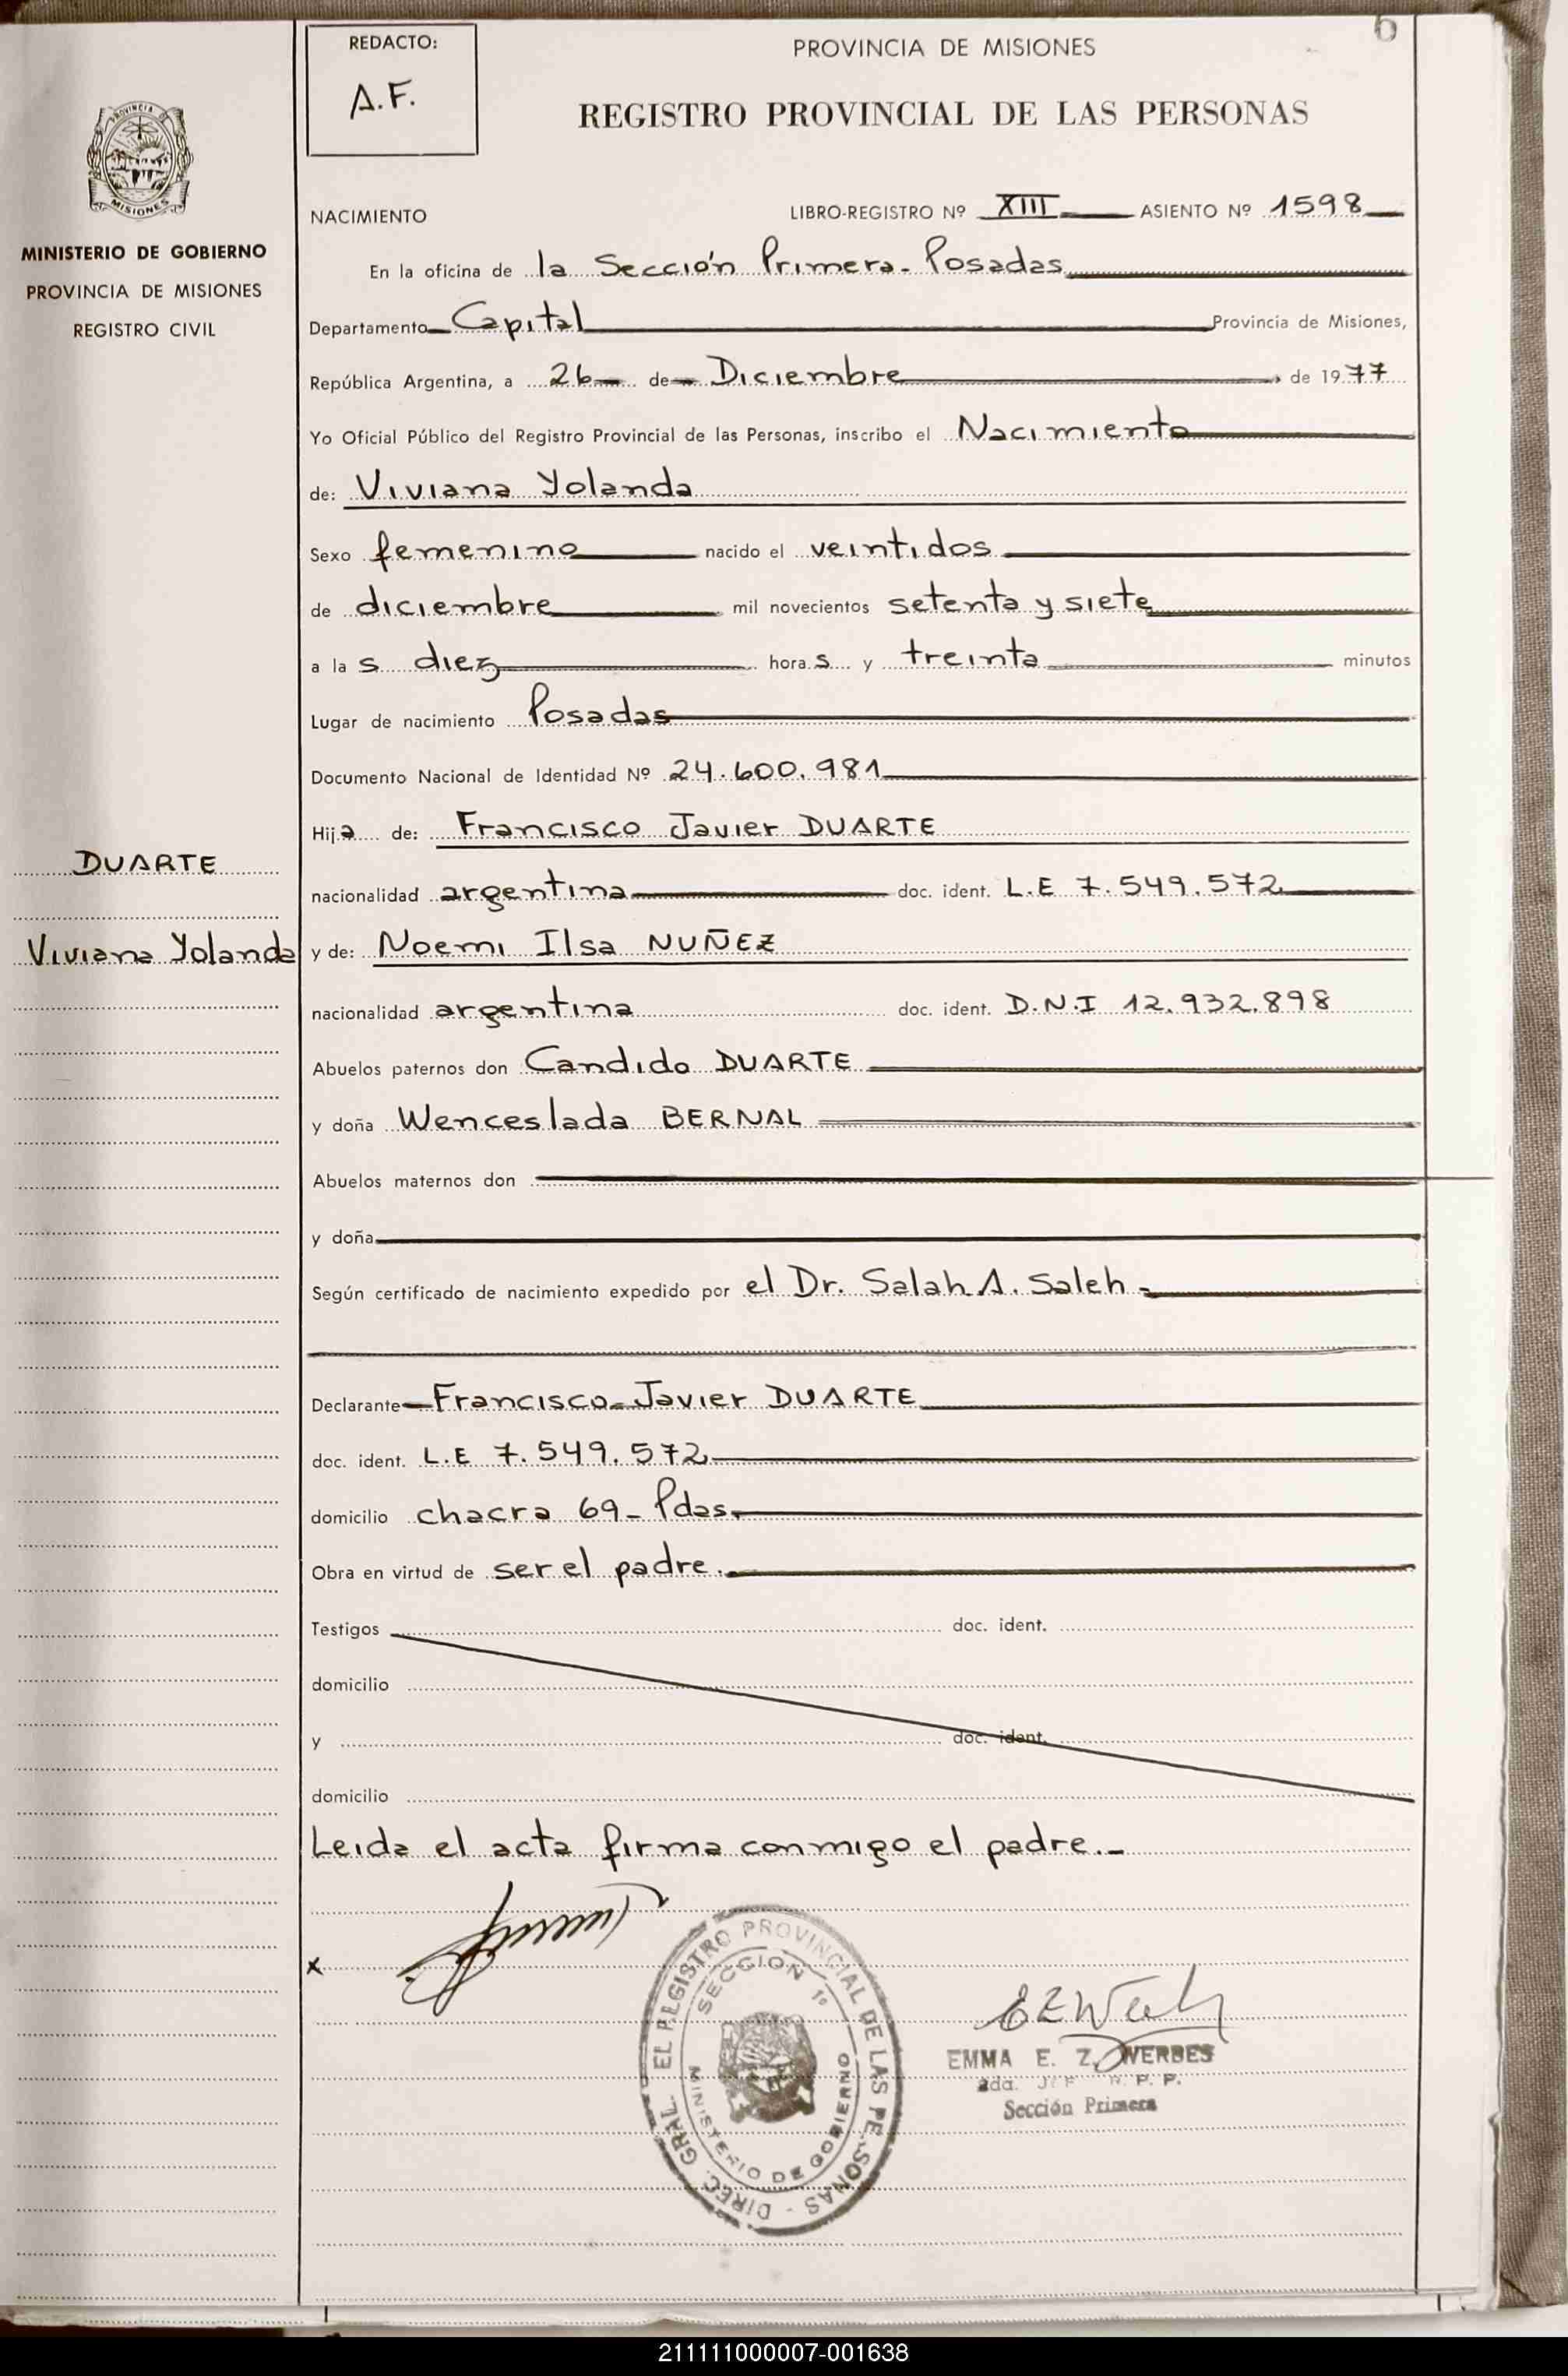 6
REDACTO:
A.F.
PROVINCIA DE MISIONES
REGISTRO PROVINCIAL DE LAS PERSONAS
PROVINCIA DE
MISIONES
MINISTERIO DE GOBIERNO
PROVINCIA DE MISIONES
REGISTRO CIVIL
NACIMIENTO LIBRO-REGISTRO Nº XIII ASIENTO Nº 1598
En la oficina de la Sección Primera - Posadas
Departamento Capital Provincia de Misiones,
República Argentina, a 26 de Diciembre de 1977
Yo Oficial Público del Registro Provincial de las Personas, inscribo el Nacimiento
de: Viviana Yolanda
Sexo femenino nacido el veintidos
de diciembre mil novecientos setenta y siete
a las diez horas y treinta minutos
Lugar de nacimiento Posadas
Documento Nacional de Identidad Nº 24.600.981
Hija de: Francisco Javier DUARTE
DUARTE
nacionalidad argentina doc. ident. L.E 7.549.572
Viviana Yolanda
y de: Noemi Ilsa NUÑEZ
nacionalidad argentina doc. ident. D.N.I 12.932.898
Abuelos paternos don Candido DUARTE
y doña Wenceslada BERNAL
Abuelos maternos don
y doña
Según certificado de nacimiento expedido por el Dr. Salah A. Saleh.-
Declarante Francisco Javier DUARTE
doc. ident. L.E 7.549.572
domicilio chacra 69 - Pdas.
Obra en virtud de ser el padre.
Testigos doc. ident.
domicilio
y doc. ident.
domicilio
Leida el acta firma conmigo el padre.-
x
DIREC. GRAL. EL REGISTRO PROVINCIAL DE LAS PERSONAS -
SECCION 1º
MINISTERIO DE GOBIERNO
EMMA E. Z. WERBES
2da. R. P. P.
Sección Primera
211111000007-001638